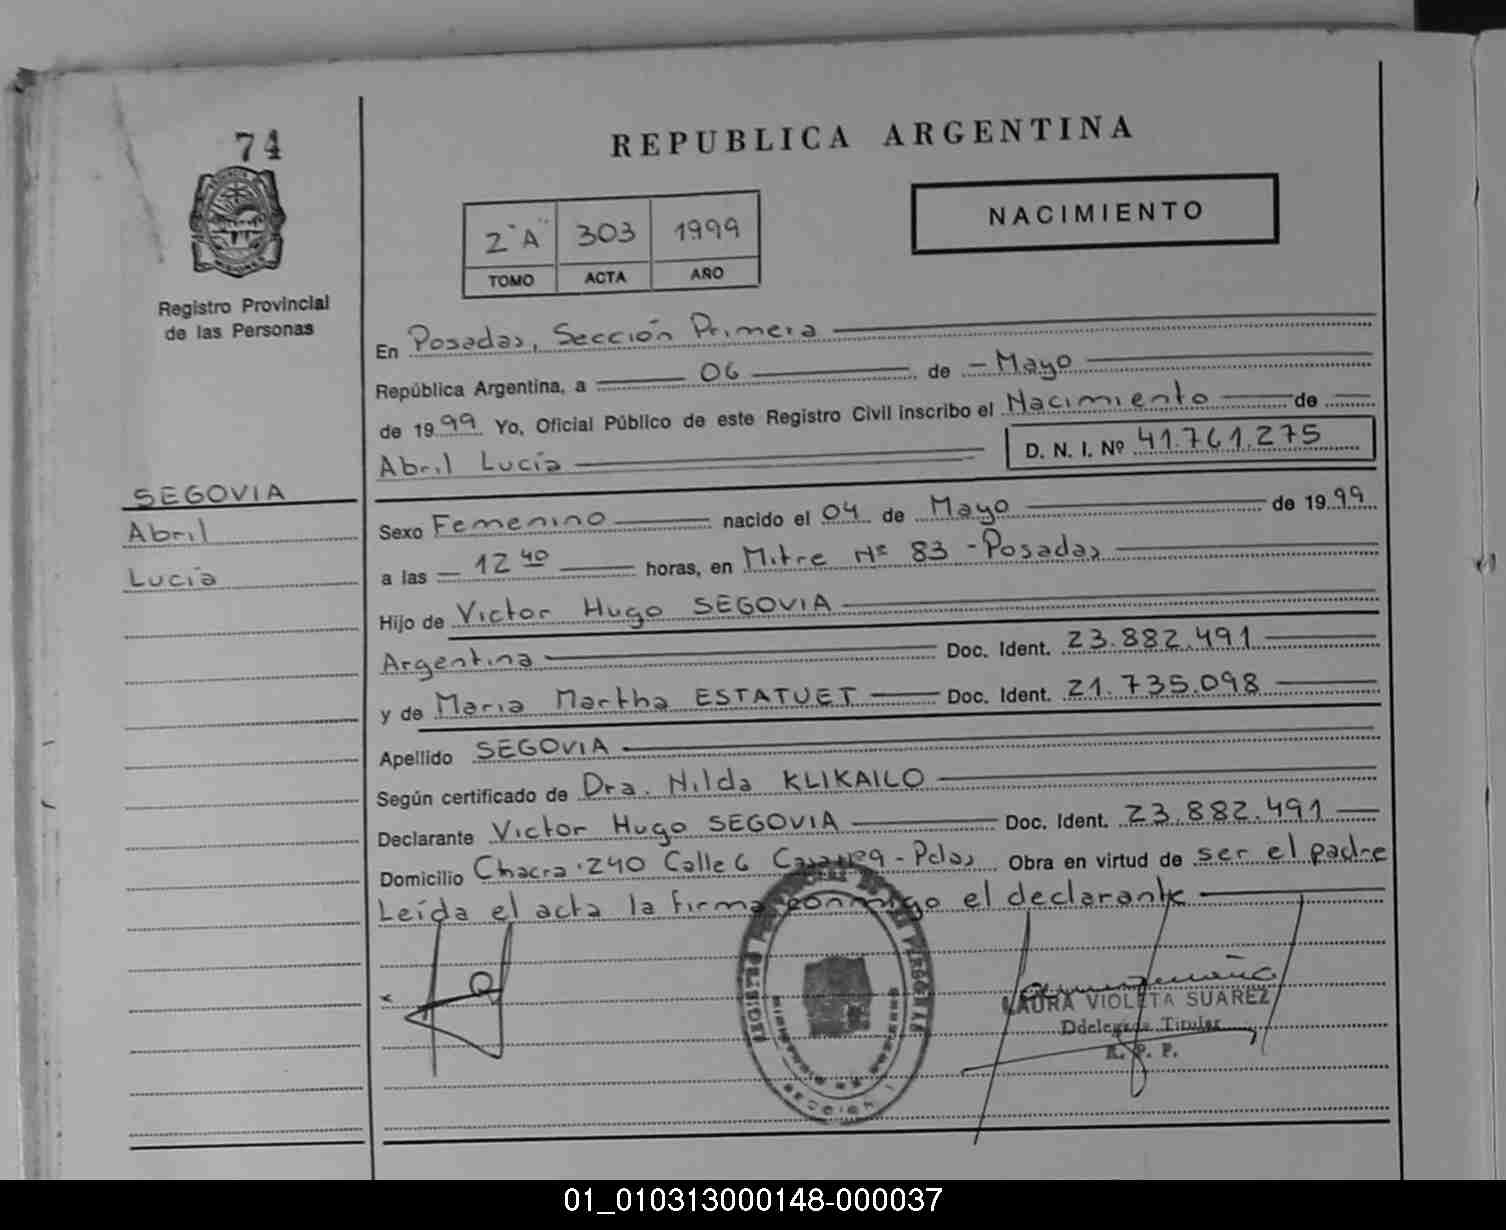 74
Registro Provincial
de las Personas
REPUBLICA ARGENTINA
2"A" 303 1999
TOMO ACTA AÑO
NACIMIENTO
En Posadas, Sección Primera
República Argentina, a 06 de - Mayo
de 1999 Yo, Oficial Público de este Registro Civil inscribo el Nacimiento de
Abril Lucía D. N. I. Nº 41.761.275
SEGOVIA
Abril
Lucía
Sexo Femenino nacido el 04 de Mayo de 1999
a las 12 40 horas, en Mitre Nº 83 - Posadas
Hijo de Victor Hugo SEGOVIA
Argentina Doc. Ident. 23.882.491
y de Maria Martha ESTATUET Doc. Ident. 21.735.098
Apellido SEGOVIA
Según certificado de Dra. Nilda KLIKAILO
Declarante Victor Hugo SEGOVIA Doc. Ident. 23.882.491
Domicilio Chacra 240 Calle 6 - Pdas Obra en virtud de ser el padre
Leída el acta la firma conmigo el declarante
LAURA VIOLETA SUAREZ
Ddelegada Titular
R. P. P.
01_010313000148-000037